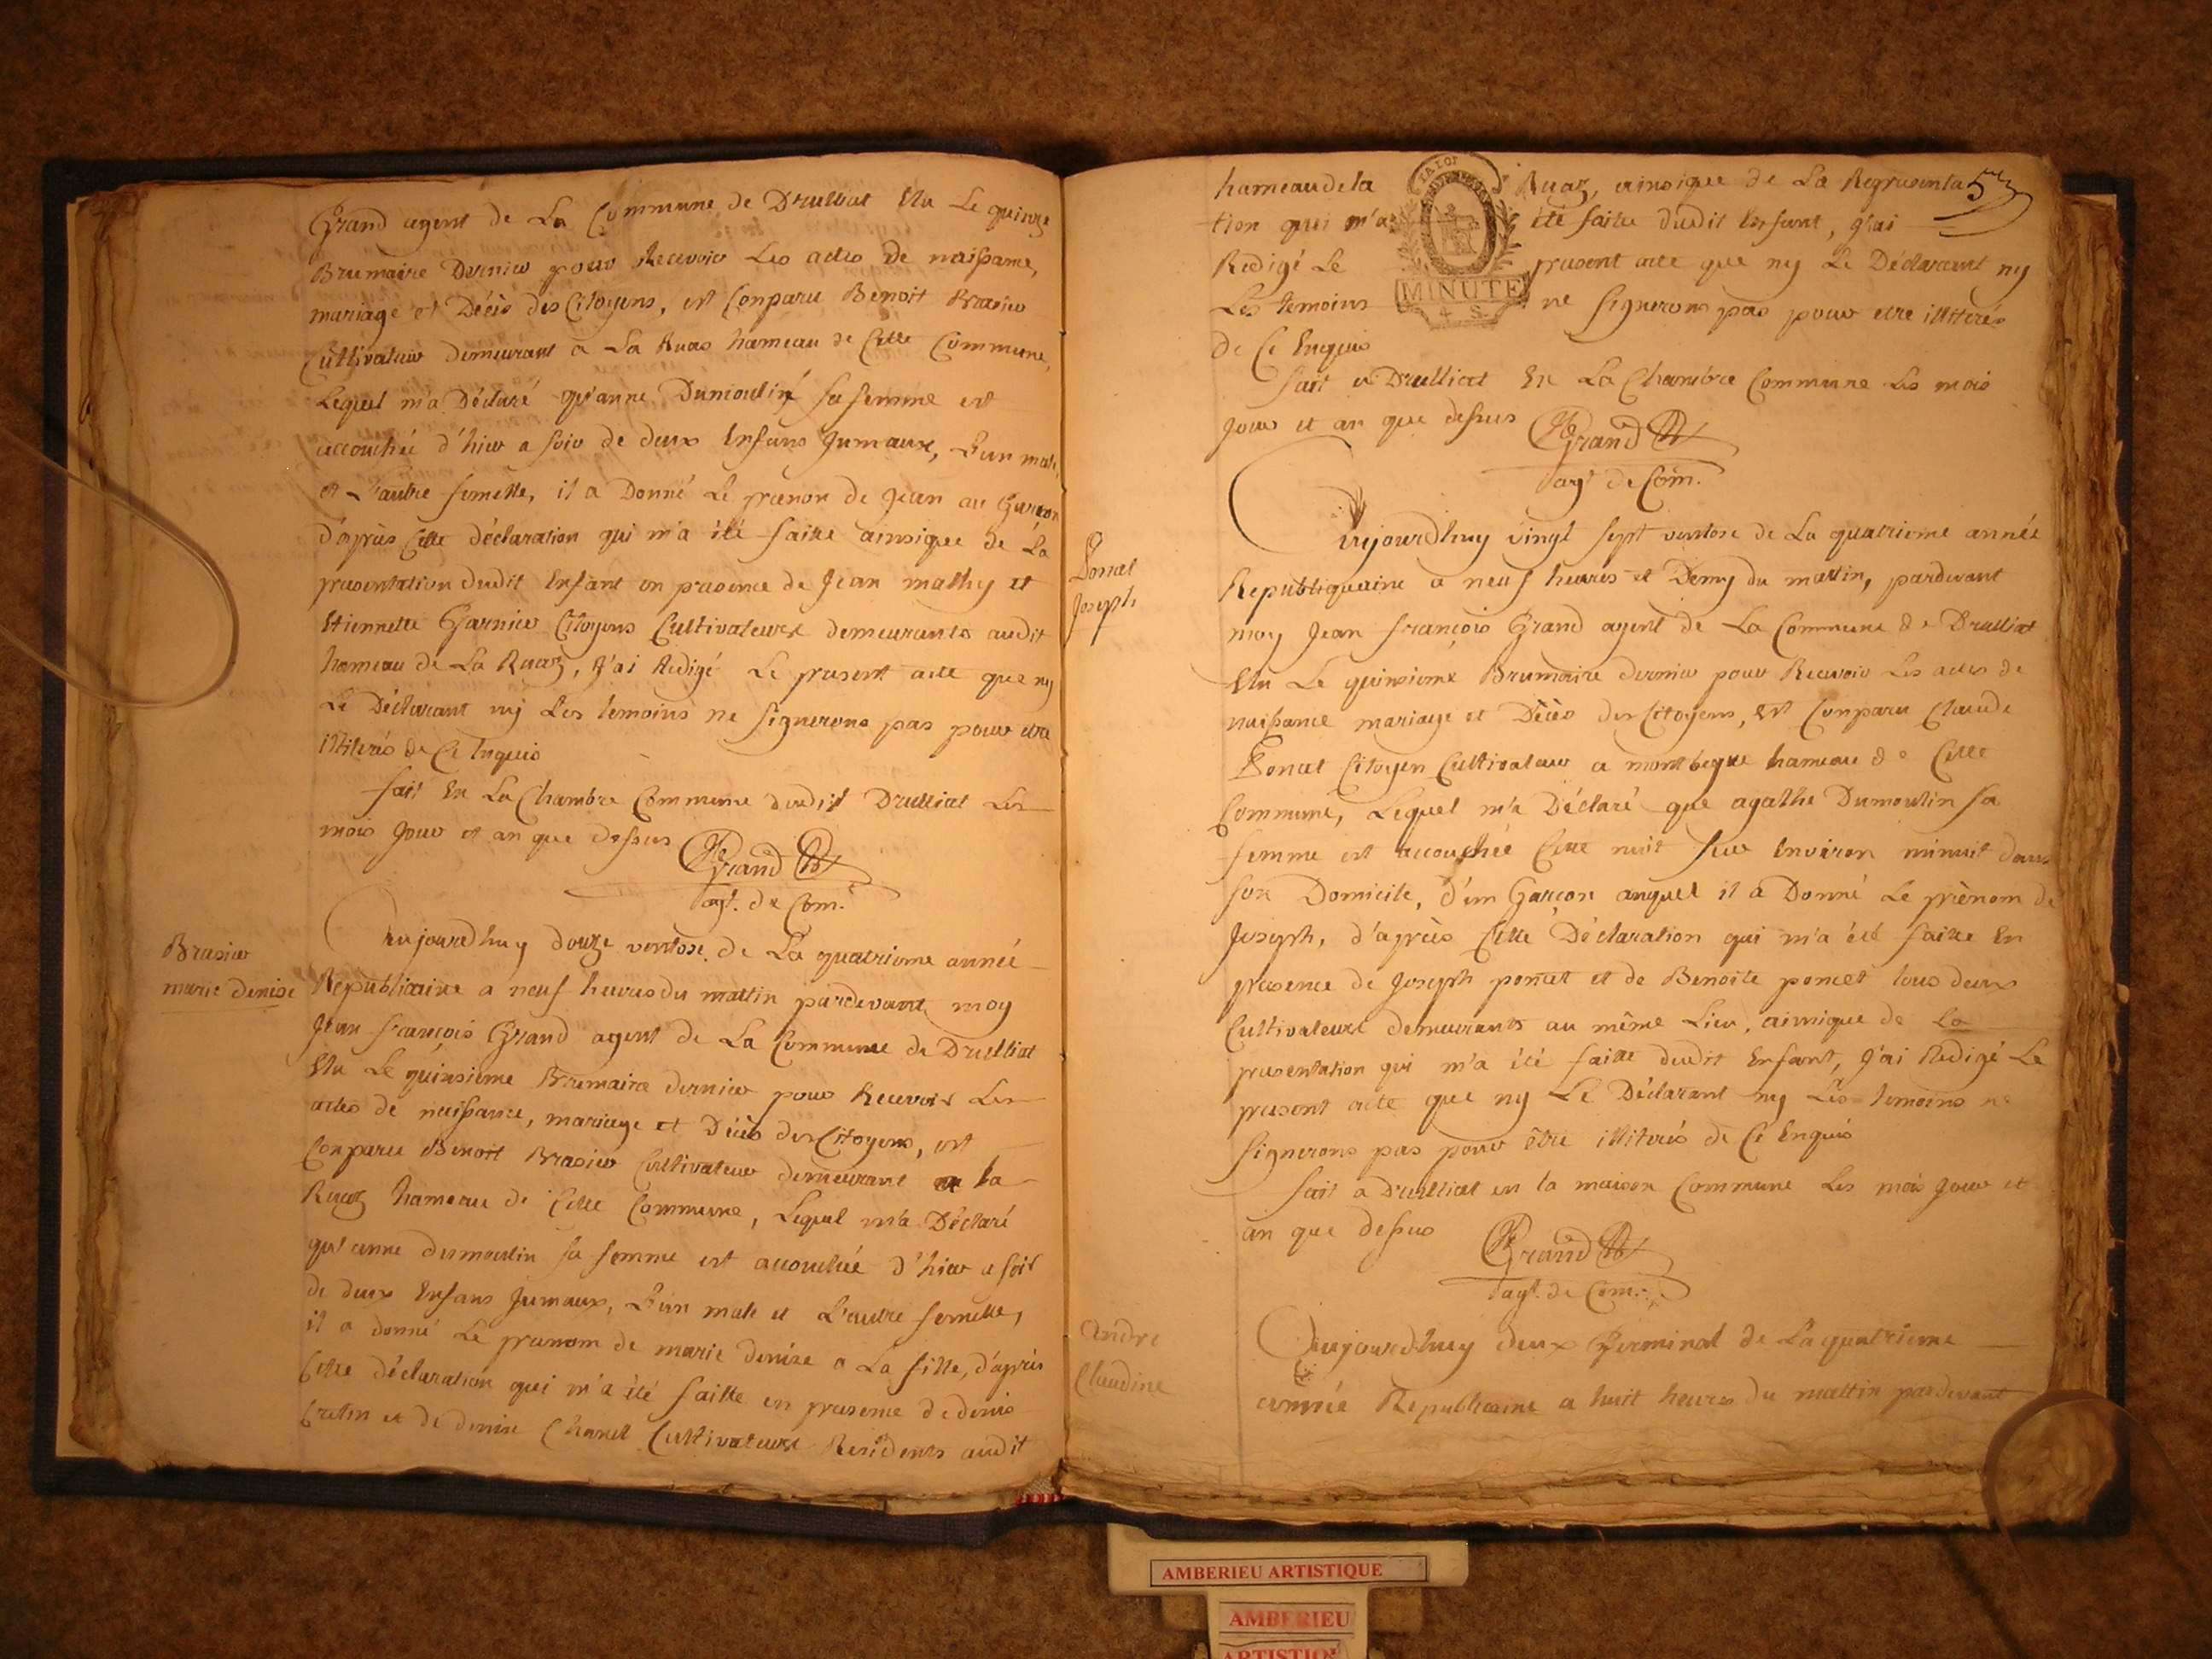 Grand agent de La Commune de Drulliat Elu Le quinze
Brumaire Dernier pour Recevoir Les actes de naissance,
mariage et Décès des Citoyens, est Conparu Benoit Brasier
Cultivateur demeurant a La Ruas hameau de Cette Commune,
Lequel m'a Déclaré qu'anne Dumoulin sa femme est
accouchée d'hier a soir de deux Enfans Jumaux, L'un male,
et L'autre femelle, il a Donné Le prenon de Jean au Garcon
d'après Cette déclaration qui m'a été faitte ainsique de La
presentation dudit Enfant en presence de Jean mathy et
Etiennette Garnier Citoyens Cultivateurs demeurants audit
hameau de La Ruaz, J'ai Redigé Le present acte que ny
Le Déclarant ny Les temoins ne signerons pas pour etre
illiterés de Ce Enquis
fait En La Chambre Commune dudit Drulliat Les
mois Jour et an que dessus Grand
agt. de Com.
Brasier
marie denise
aujourdhuy douze ventose de La quatrieme année
Républicaine a neuf heures du mattin pardevant moy
Jean françois Grand agent de La Commune de Drulliat
Elu Le quinsieme Brumaire dernier pour Recevoir Les
actes de naissance, mariage et Décès des Citoyens, est
Conparu Benoit Brasier Cultivateur demeurant a la
Ruaz hameau de Cette Commune, Lequel m'a Déclaré
qu'anne dumoulin sa femme est accouchée d'hier a soir
de deux Enfans Jumaux, L'un male et L'autre femelle,
il a donné Le prenom de marie denise a La fille, d'après
Cette déclaration qui m'a été faitte en presence de denis
Cretin et de denise Chanel Cultivateurs Residents audit
hameau de la Ruaz, ainsique de La Representa
tion qui m'a été faitte dudit Enfant, J'ai
Redigé Le present acte que ny Le Déclarant ny
Les temoins ne signerons pas pour etre illiterés
de Ce Enquis
LA LOI
MINUTE
4 S.
fait a Drulliat En La Chambre Commune Les mois
Jour et an que dessus Grand
agt de Com.
Poncet
Joseph
aujourdhuy vingt sept ventose de La quatrieme année
Republiquaine a neuf heures et Demy du mattin, pardevant
moy Jean françois Grand agent de La Commune de Drulliat
Elu Le quinsieme Brumaire dernier pour Recevoir Les actes de
naissance mariage et Décès des Citoyens, Est Conparu Claude
Poncet Citoyen Cultivateur a montbegue hameau de Cette
Commune, Lequel m'a Déclaré que agathe Dumoulin sa
femme est accouchée Cette nuit sur Environ minuit dans
son Domicile, d'un Garcon auquel il a Donné Le prènom de
Joseph, d'après Cette Déclaration qui m'a été faitte En
presence de Joseph poncet et de Benoite poncet tous deux
Cultivateurs demeurants au même Lieu, ainsique de La
presentation qui m'a été faitte dudit Enfant, J'ai Redigé Le
present acte que ny Le Déclarant ny Les temoins ne
signerons pas pour être illiterés de Ce Enquis
fait a Drulliat en la maison Commune Les mois Jour et
an que dessus
Grand
agt. de Com.
andre
Claudine
aujourdhuy deux Germinal de La quatrieme
année Republicaine a huit heures du mattin pardevant
AMBERIEU ARTISTIQUE
AMBERIEU
ARTISTIQUE